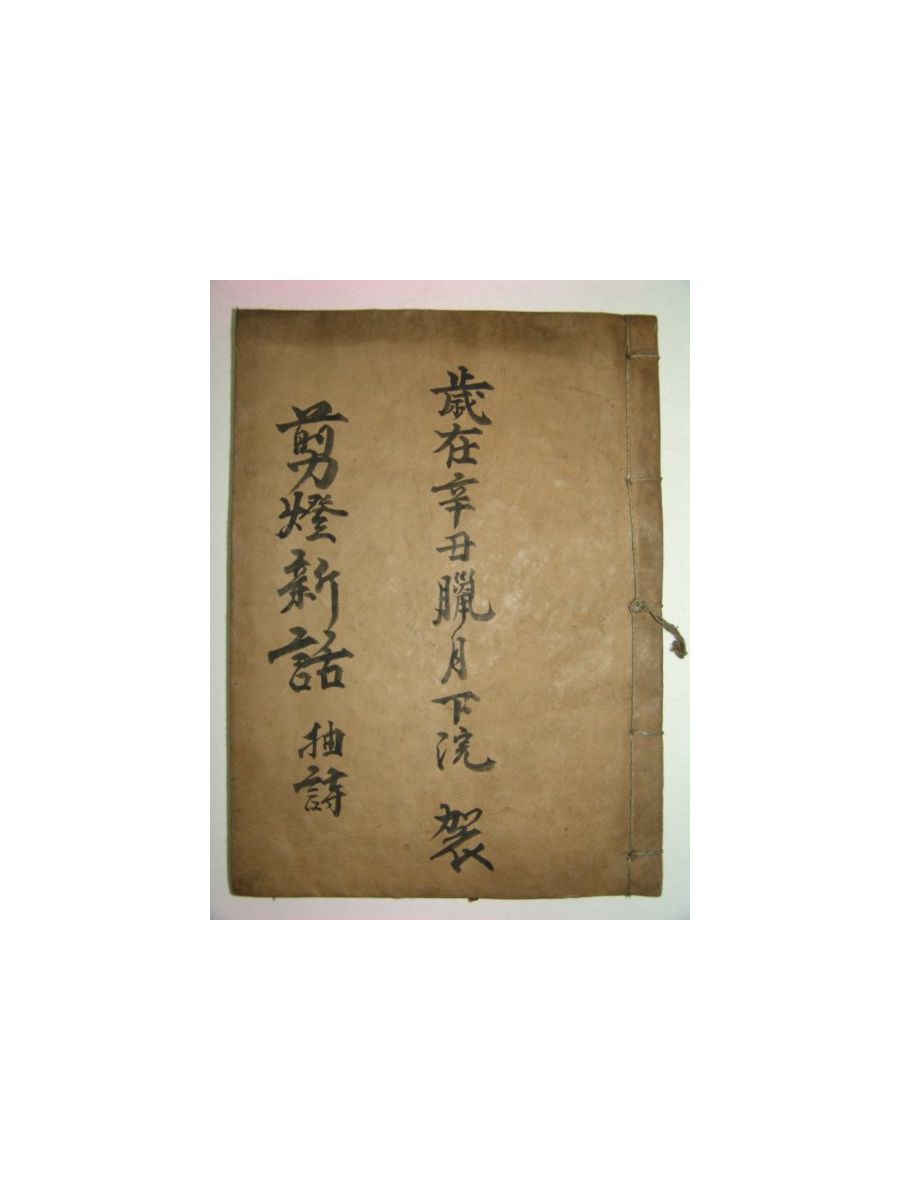 歲在辛丑臘月下浣 袈
剪燈新話 抽詩